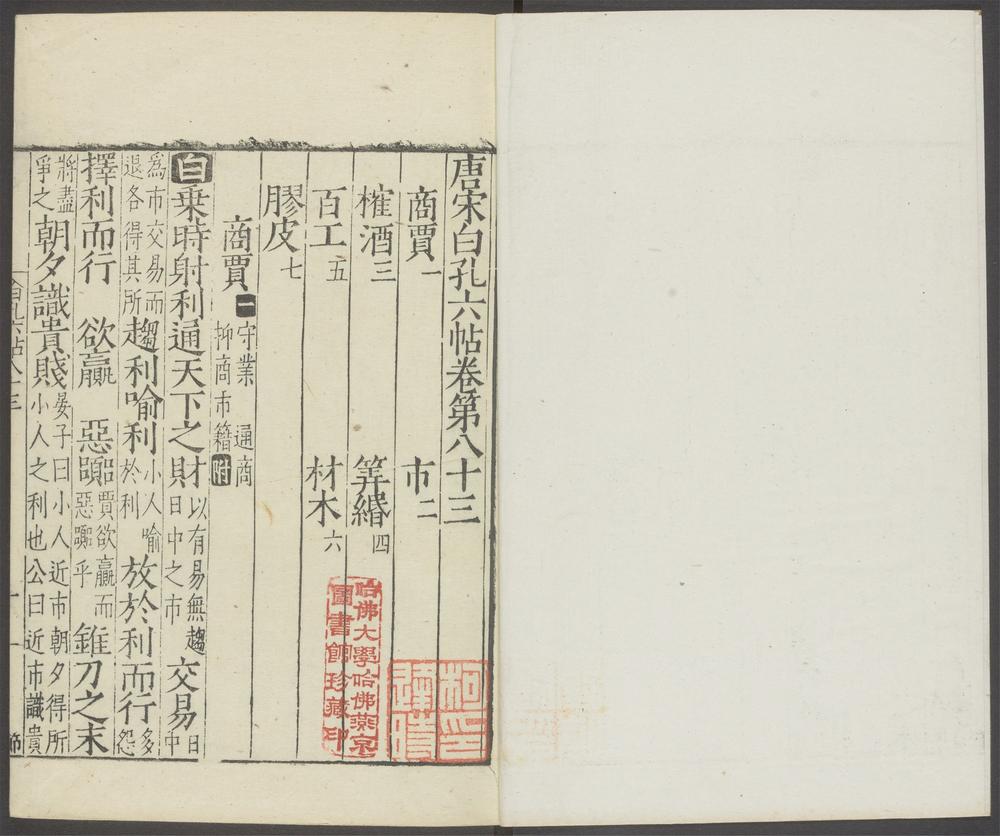 唐宋白孔六帖卷第八十三
商賈一 市二
榷酒三 筭緡四
百工五 材木六
膠皮七
商賈一 守業 通商 抑商市籍附
白 乗時射利通天下之財 以有易無趨日中之市 交易 日中
爲市交易而退各得其所 趨利喻利 小人喻於利 放於利而行 多怨
擇利而行 欲贏 惡嚻 賈欲贏而惡嚻乎 錐刀之末
將盡爭之 朝夕識貴賤 晏子曰小人近市朝夕得所小人之利也公曰近市識貴
白孔六帖八十三 一
哈佛大學哈佛燕京
圖書館珍藏印